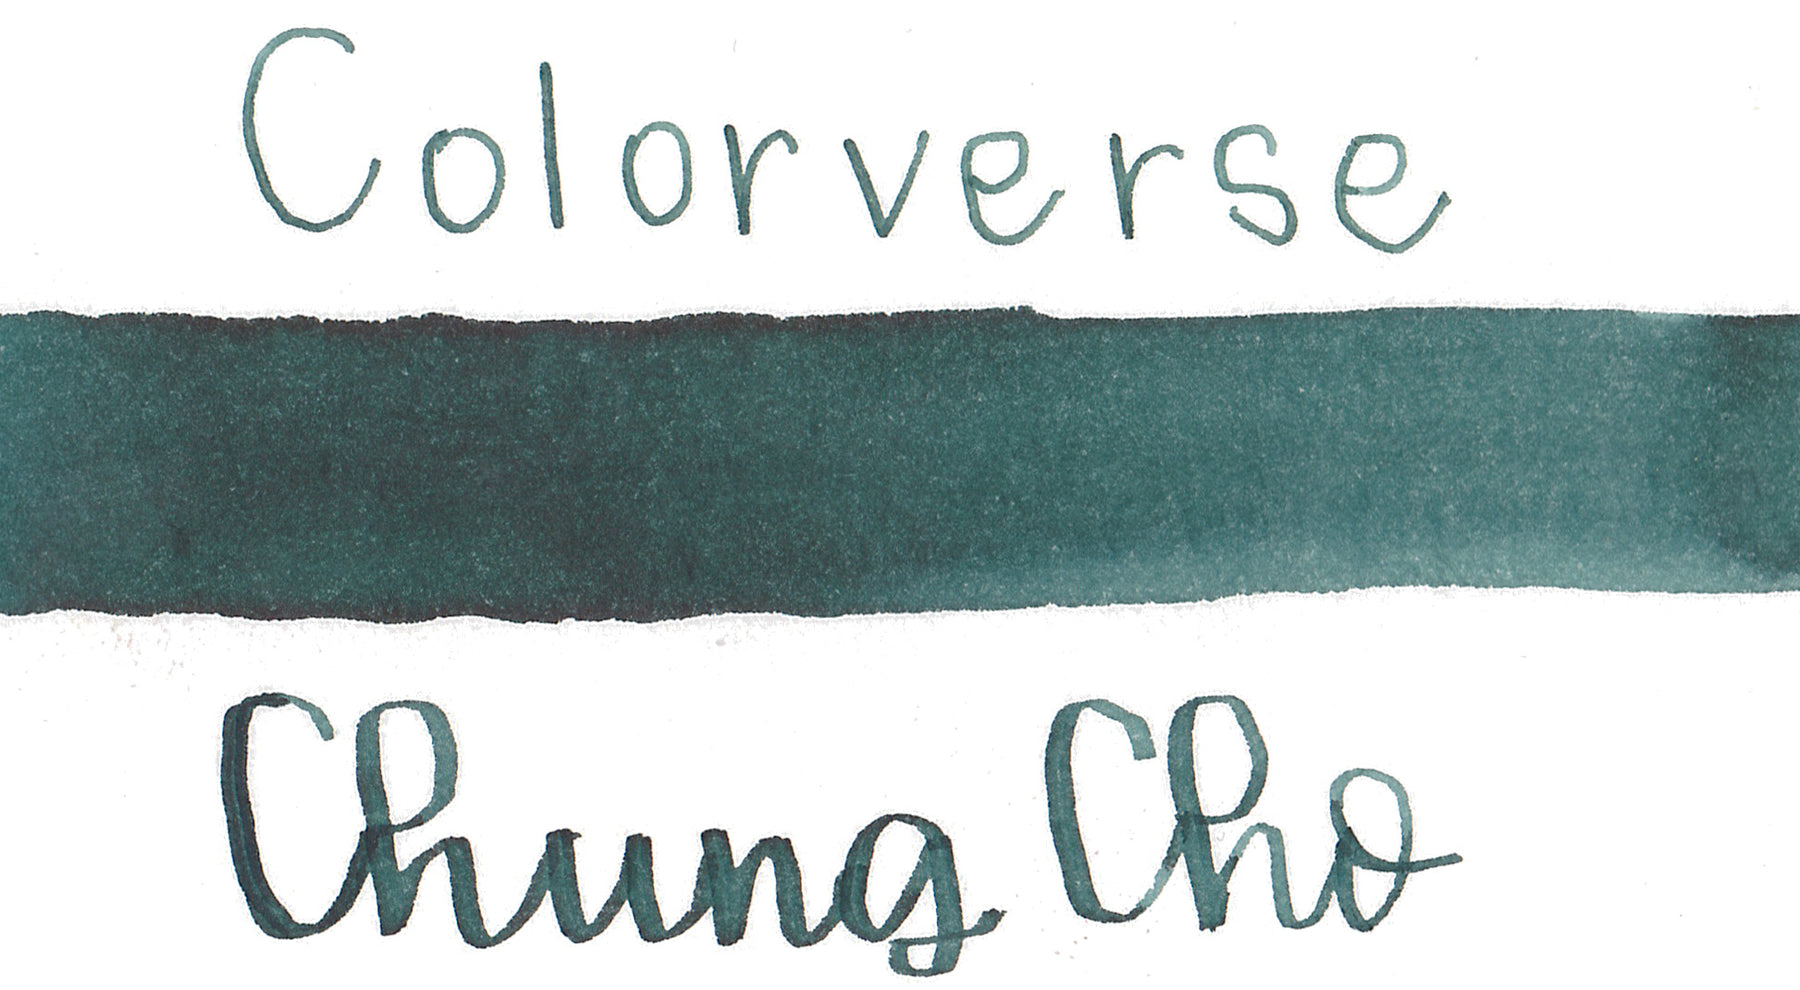 Colorverse
Chung Cho